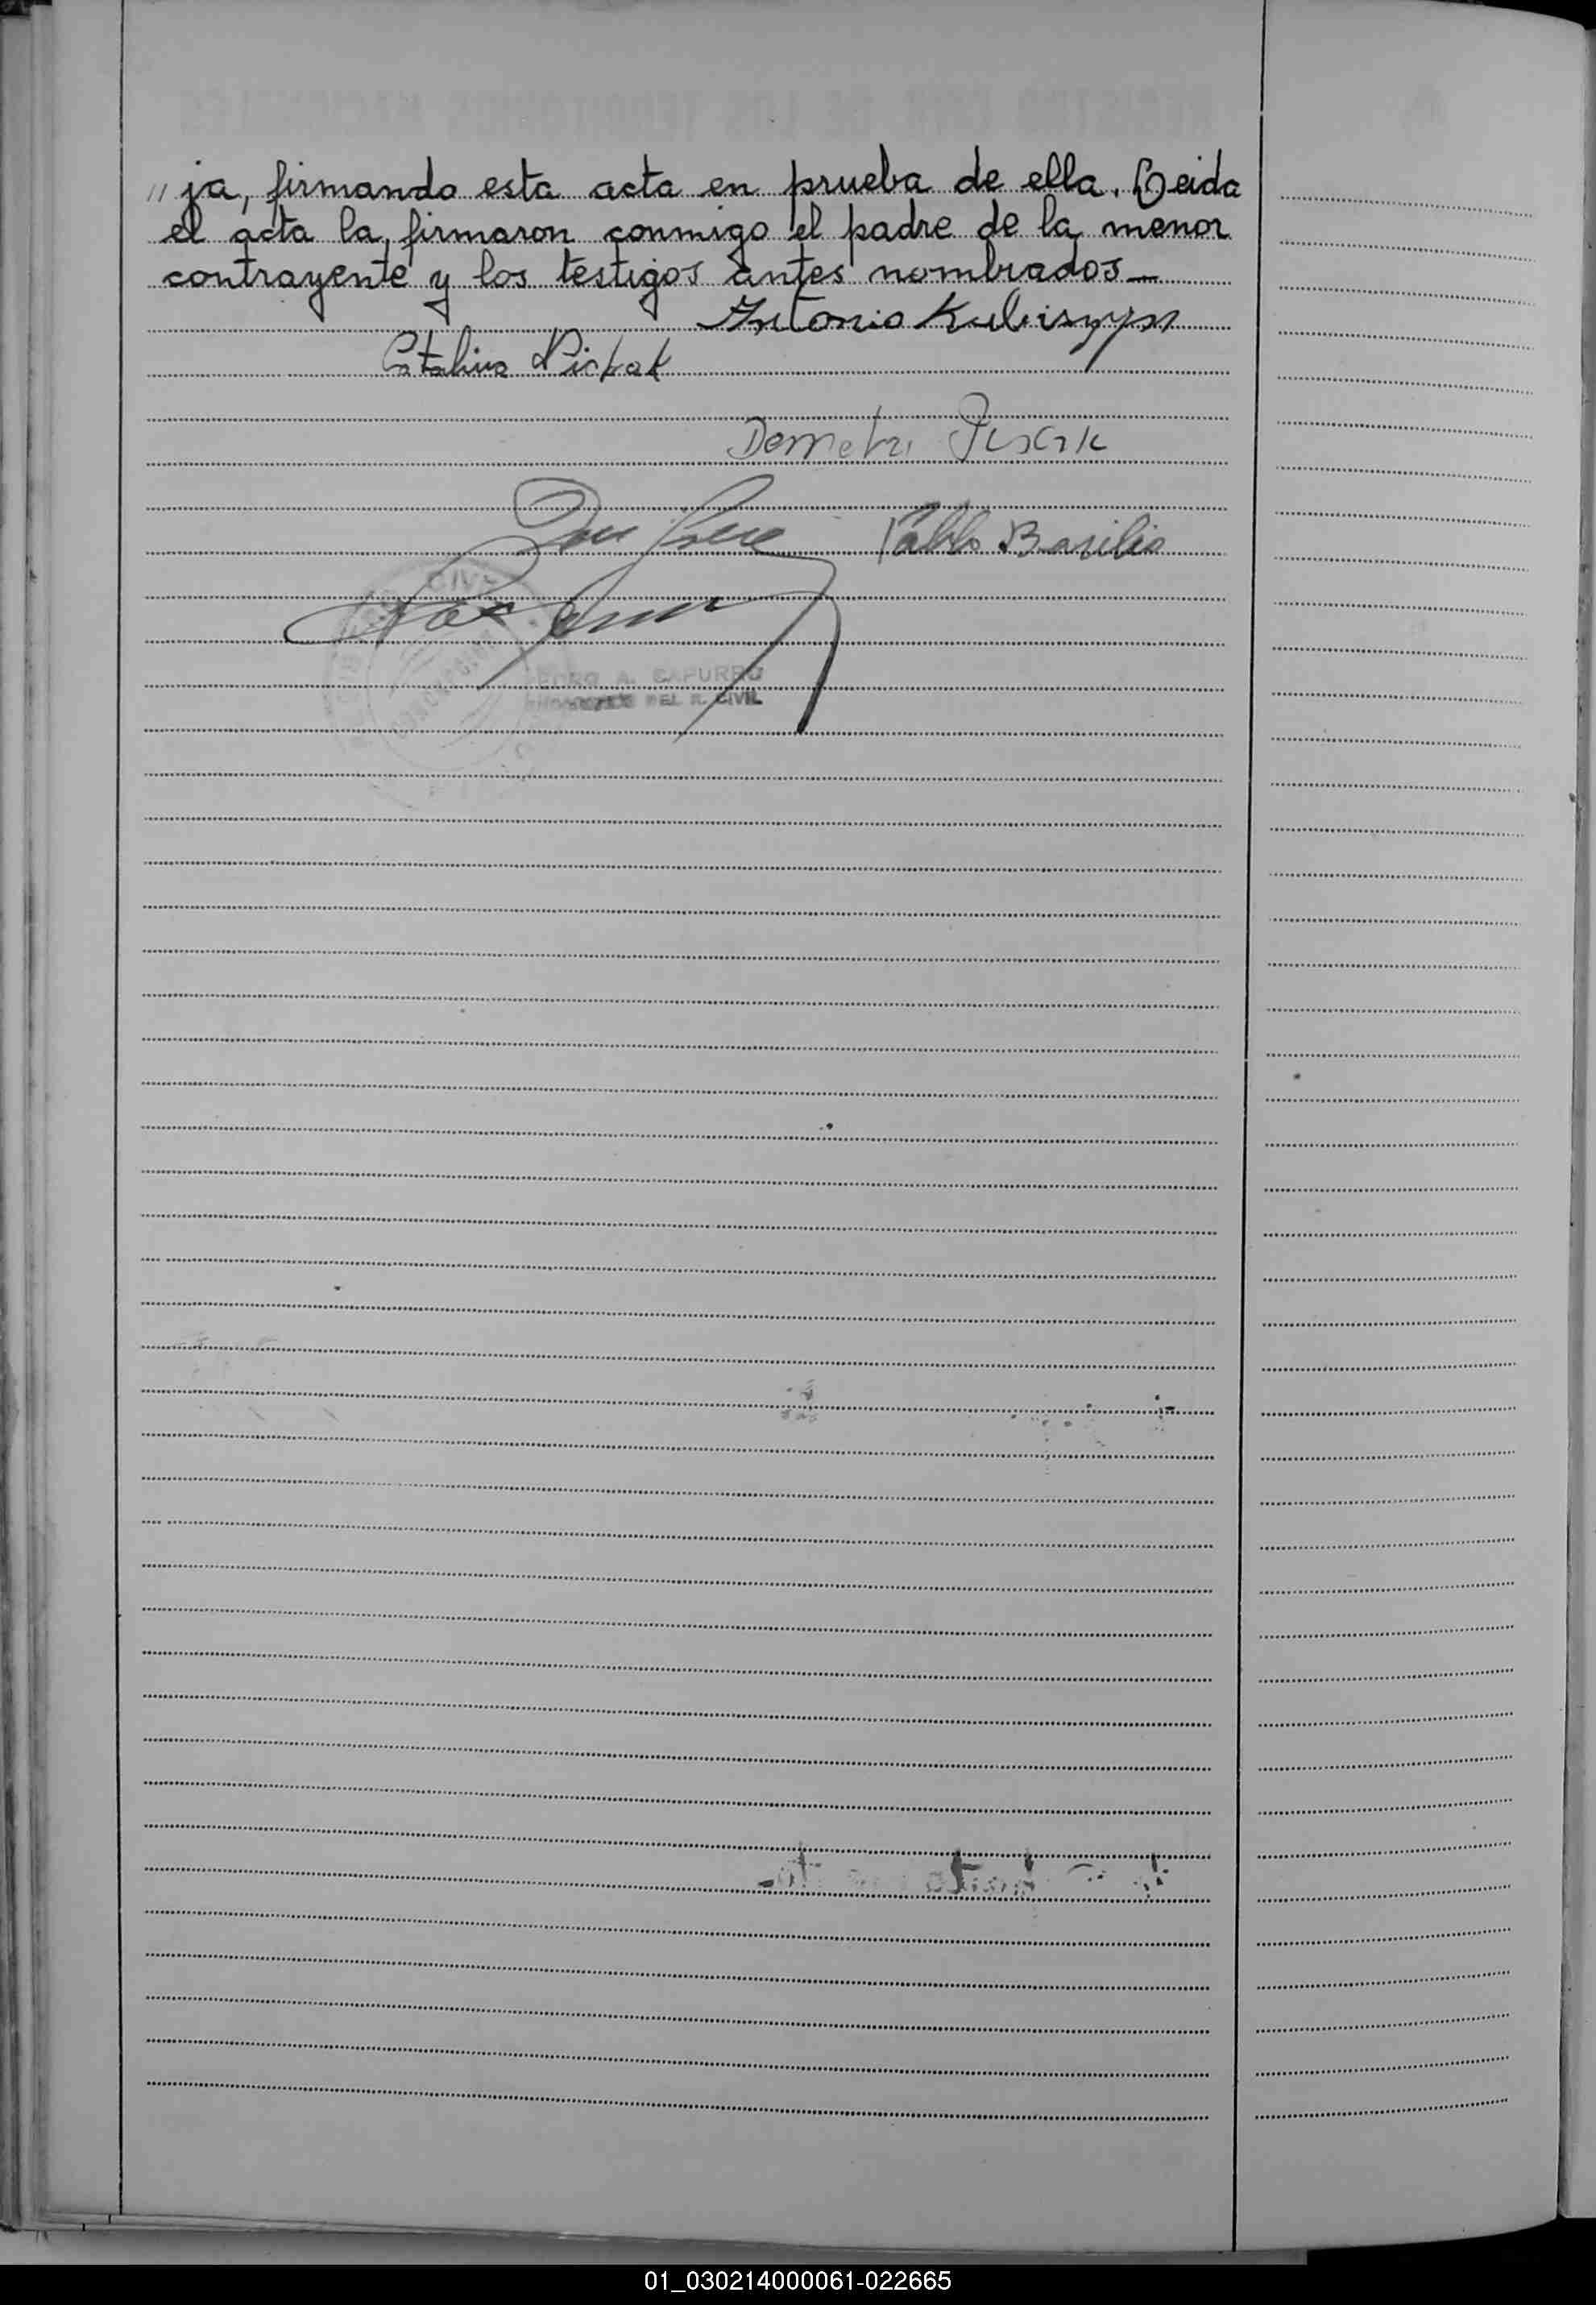 " ja, firmando esta acta en prueba de ella. Leida
el acta la firmaron conmigo el padre de la menor
contrayente y los testigos antes nombrados—
Antonio Kubiszyn
Catalina
Demetri
Pablo Basilio
CIVIL
A. CAPURRO
DEL R. CIVIL
01_030214000061-022665